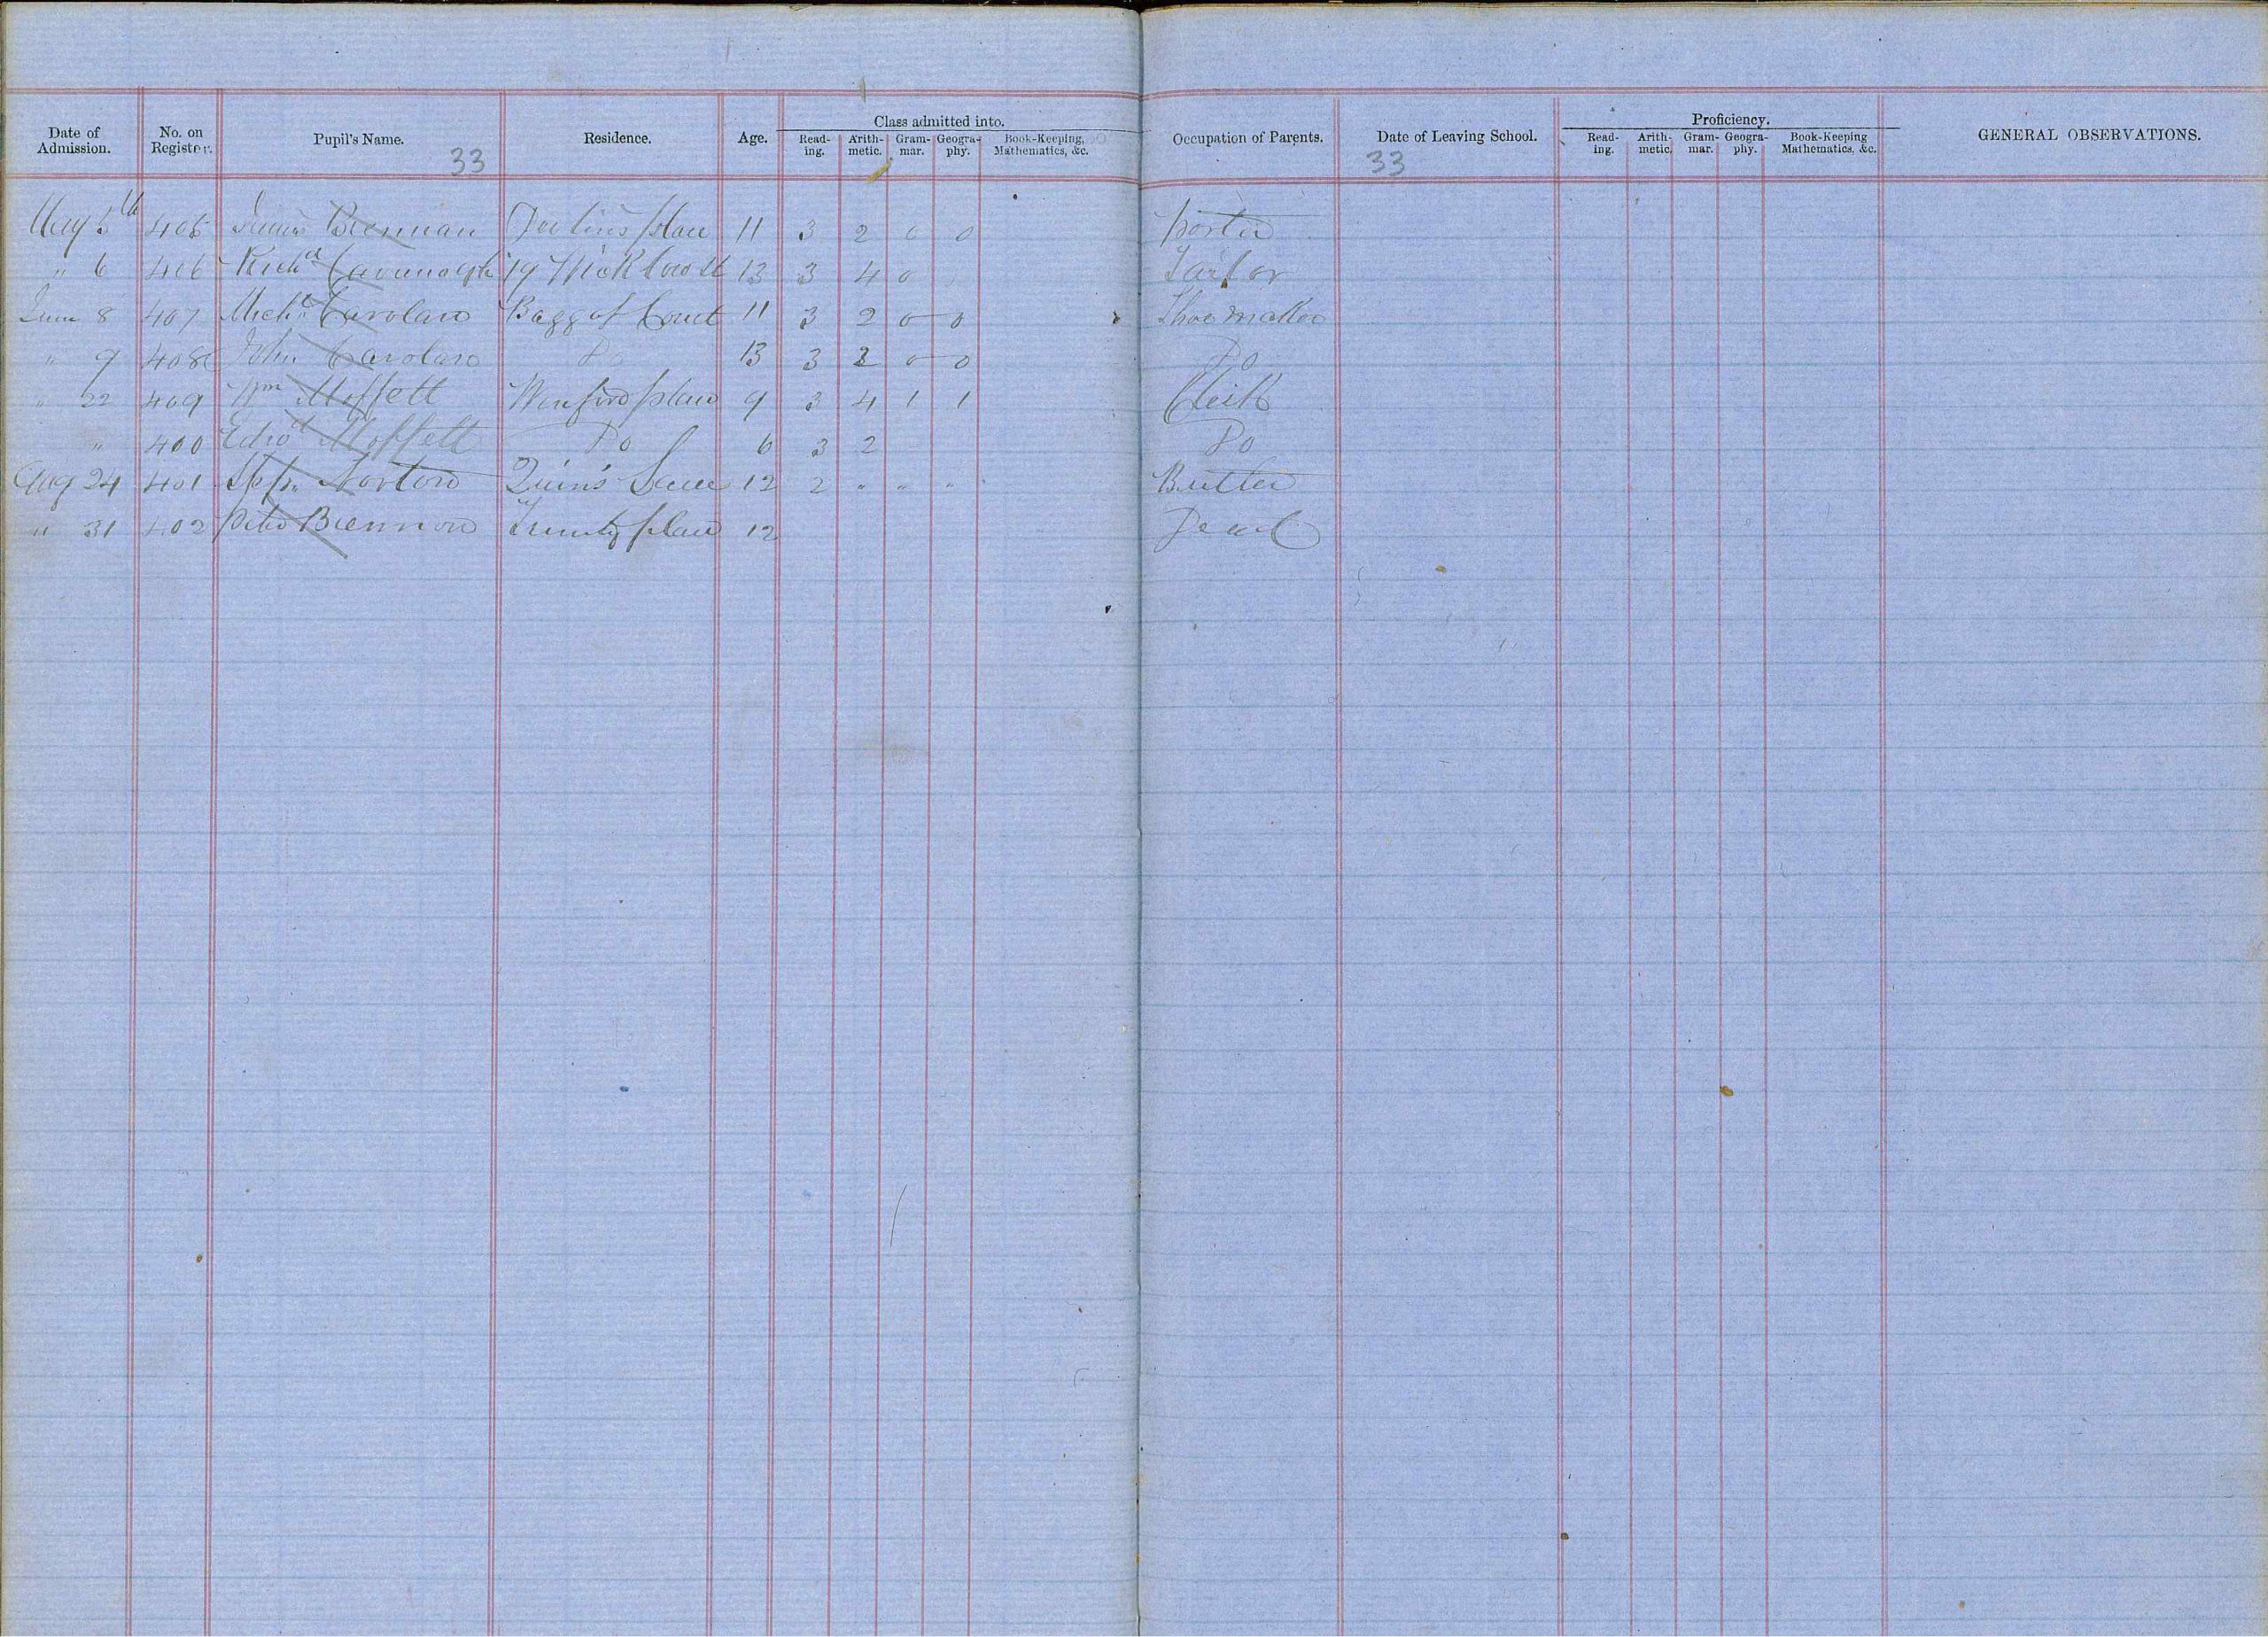 Date of Admission. No. on Register. Pupil's Name. Residence. Age. Class admitted into. Reading. Arithmetic. Grammar. Geography. Book-Keeping, Mathematics, &c. Occupation of Parents. Date of Leaving School. Proficiency. Reading. Arithmetic. Grammar. Geography. Book-Keeping Mathematics, &c. GENERAL OBSERVATIONS.
33 33
May 5th 405 James Brennan place 11 3 2 0 0 Porter
" 6 406 Richd Cavanagh 19 Wicklow St 13 3 4 0 Tailor
June 8 407 Michl Carolan Baggot Court 11 3 2 0 0 Shoemaker
" 9 408 John Carolan Do 13 3 2 0 0 Do
" 22 409 Wm Moffett place 9 3 4 1 1 Clerk
" 400 Edwd Moffett Do 6 3 2 Do
Aug 24 401 Norton Quin's Lane 12 2 " " " Butler
" 31 402 Peter Brennan Trinity place 12 Dead